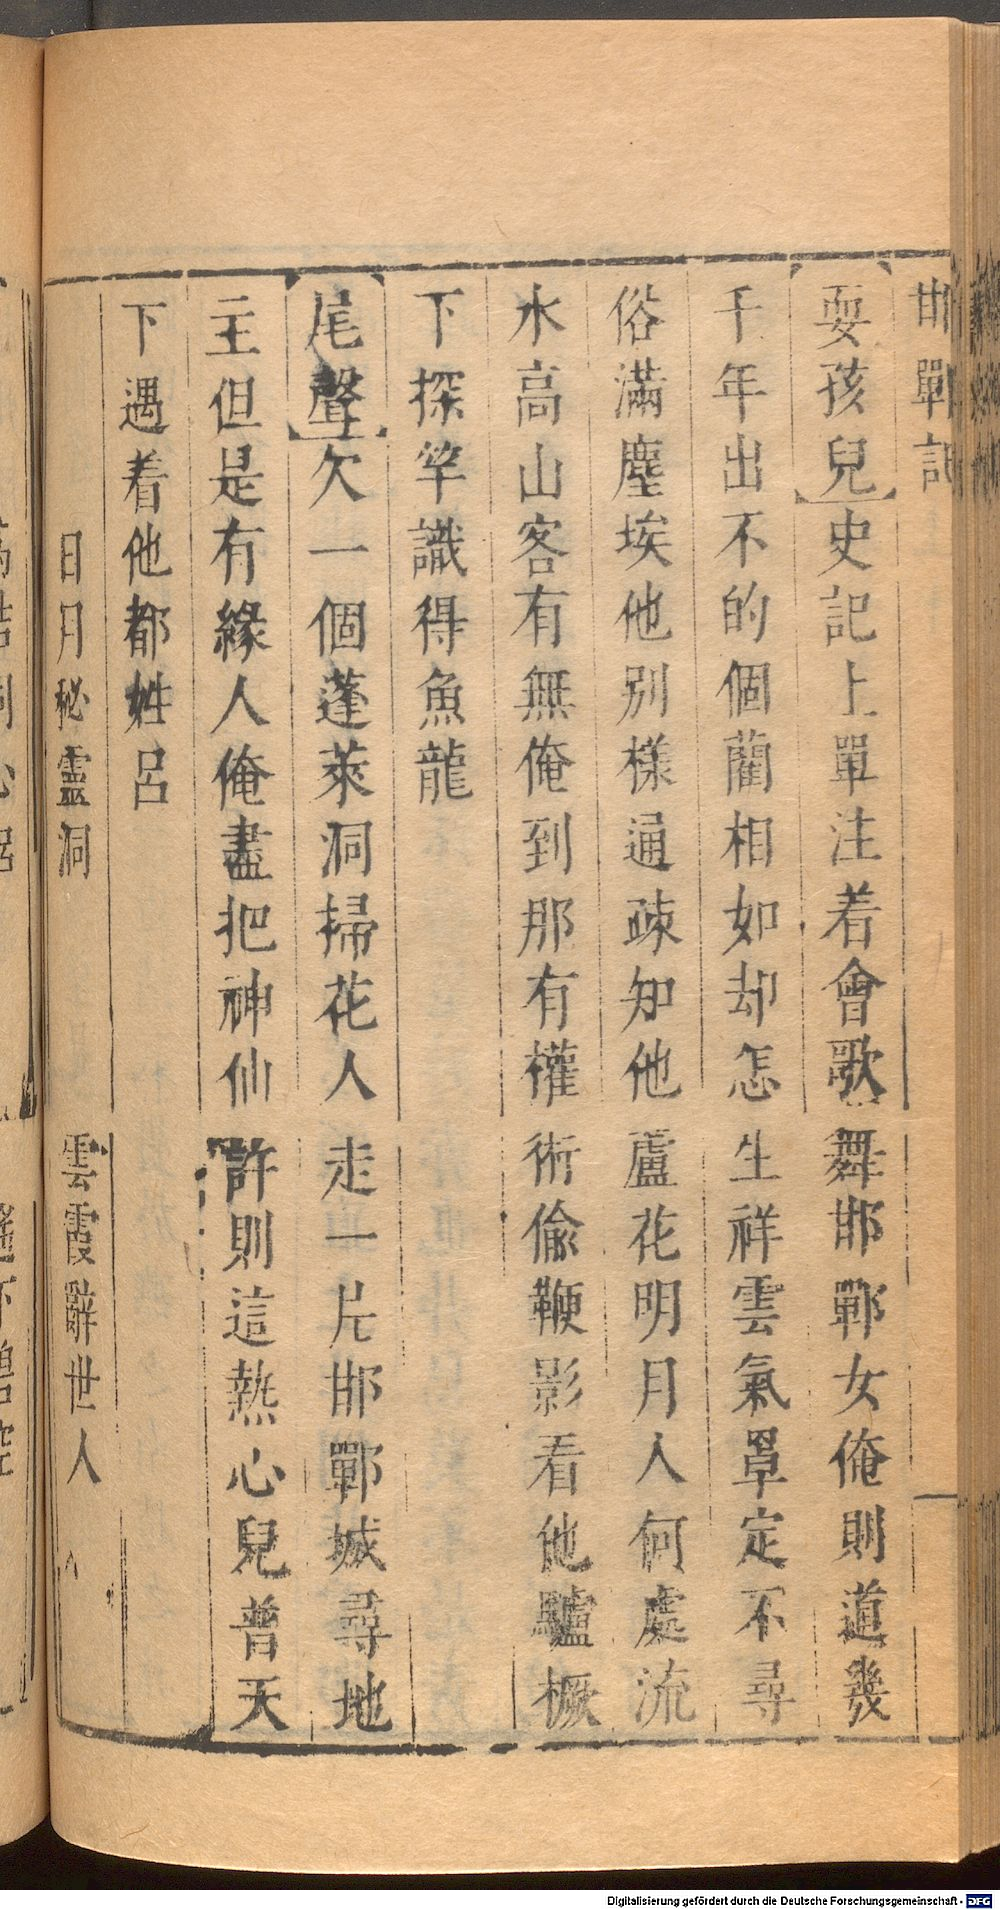 邯鄲記
【耍孩兒】史記上單注着會歌舞邯鄲女俺則道幾
千年出不的個藺相如却怎生祥雲氣罩定不尋
俗滿塵埃他別樣通疎知他蘆花明月人何處流
水高山客有無俺到那有權術偸鞭影看他驢橛
下探竿識得魚龍
【尾聲】欠一個蓬萊洞掃花人走一片邯鄲城尋地
主但是有緣人俺盡把神仙許則這熱心兒普天
下遇着他都姓呂
日月秘靈洞　雲霞辭世人
Digitalisierung gefördert durch die Deutsche Forschungsgemeinschaft - DFG